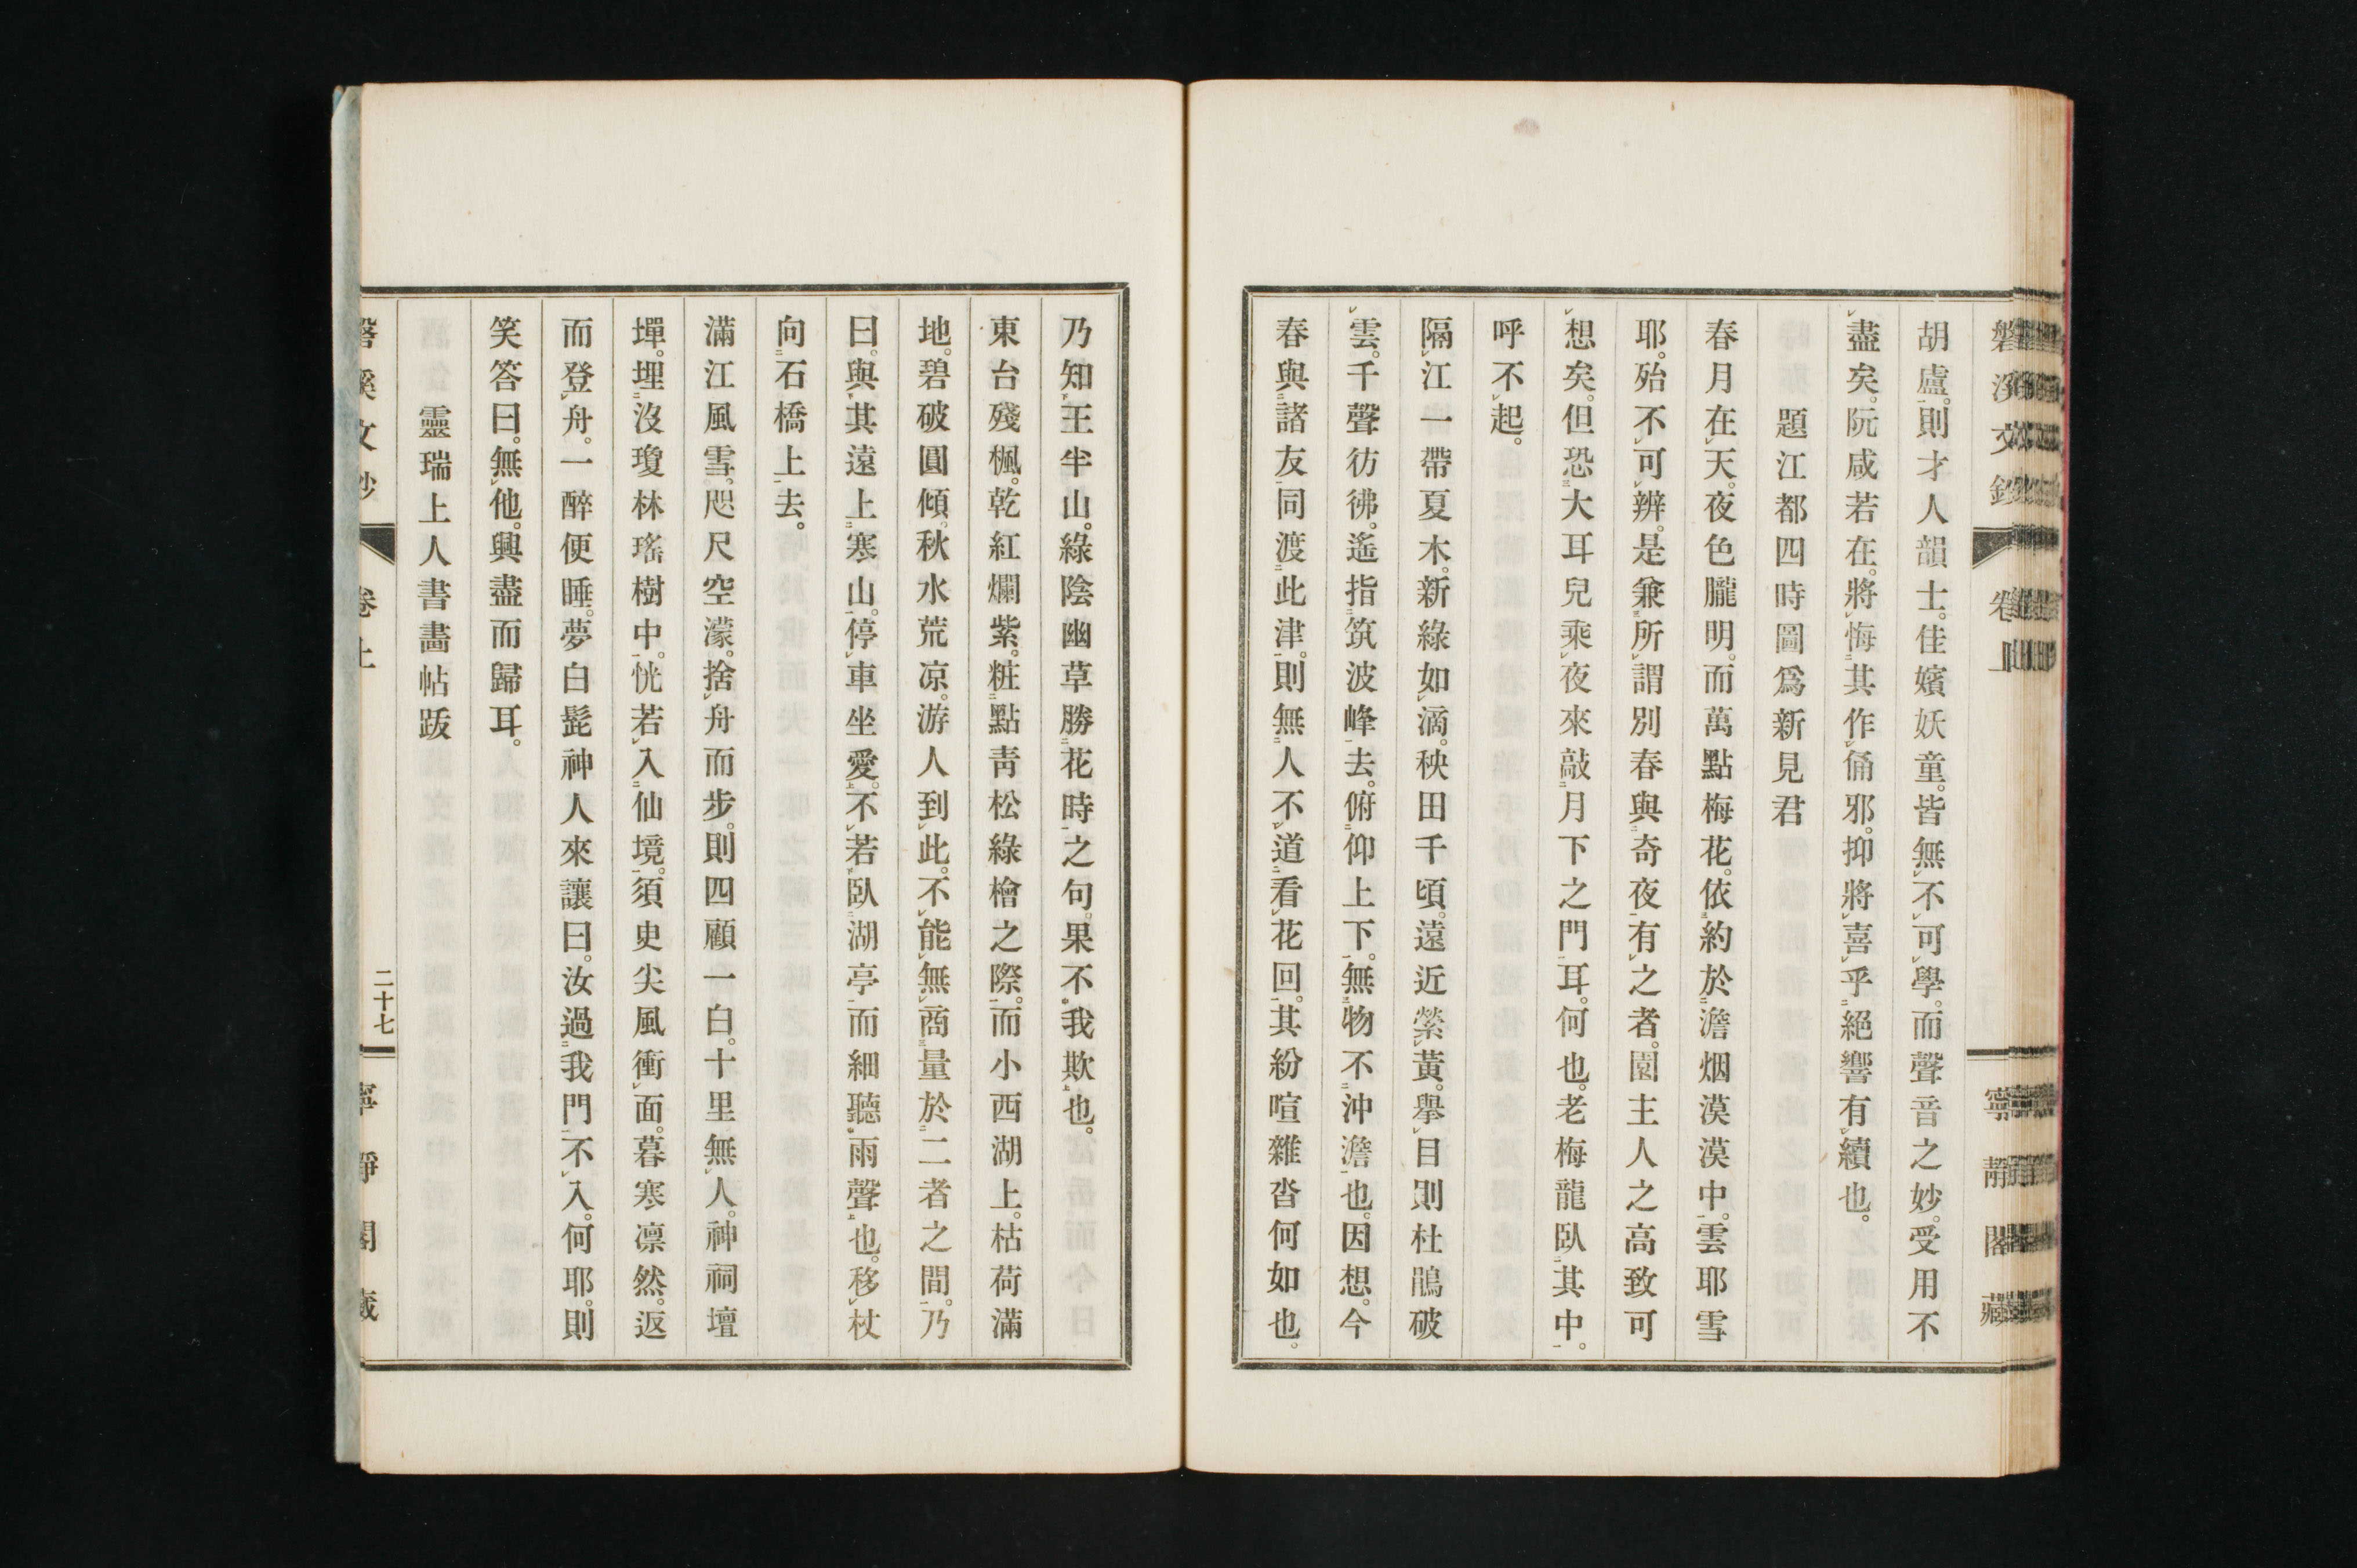 磐溪文鈔 卷上 寧靜閣藏
胡盧。則才人韻士。佳嬪妖童。皆無不可學。而聲音之妙。受用不
盡矣。阮咸若在。將悔其作俑邪。抑將喜乎絕響有續也。
題江都四時圖爲新見君
春月在天。夜色朧明。而萬點梅花。依約於澹烟漠漠中。雲耶雪
耶。殆不可辨。是兼所謂別春與奇夜有之者。園主人之高致可
想矣。但恐大耳兒乘夜來敲月下之門耳。何也。老梅龍臥其中。
呼不起。
隔江一帶夏木。新綠如滴。秧田千頃。遠近縈黃。舉目則杜鵑破
雲。千聲彷彿。遙指筑波峰去。俯仰上下。無物不沖澹也。因想。今
春與諸友同渡此津。則無人不道看花回。其紛喧雜沓何如也。
乃知王半山。綠陰幽草勝花時之句。果不我欺也。
東台殘楓。乾紅爛紫。粧點靑松綠檜之際。而小西湖上。枯荷滿
地。碧破圓傾。秋水荒凉。游人到此。不能無商量於二者之間。乃
曰。與其遠上寒山。停車坐愛。不若臥湖亭而細聽雨聲也。移杖
向石橋上去。
滿江風雪。咫尺空濛。捨舟而步。則四顧一白。十里無人。神祠壇
墠。埋沒瓊林瑤樹中。恍若入仙境。須臾尖風衝面。暮寒凛然。返
而登舟。一醉便睡。夢白髭神人來讓曰。汝過我門不入。何耶。則
笑答曰。無他。興盡而歸耳。
靈瑞上人書畵帖跋
磐溪文鈔 卷上 二十七 寧靜閣藏